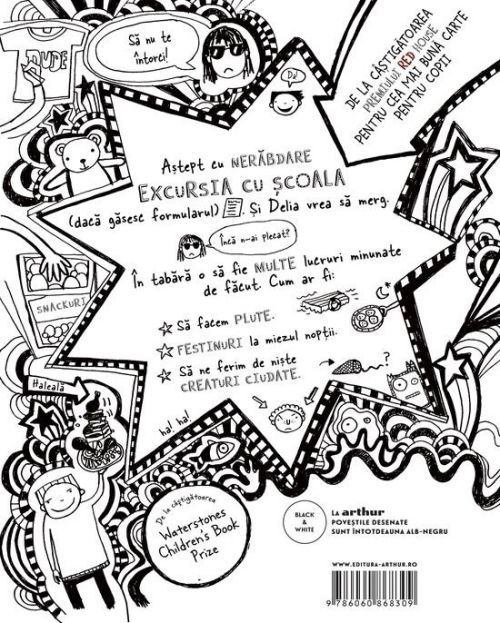 DUDE
Să nu te
întorci!
Da!
DE LA CÂȘTIGĂTOAREA
PREMIULUI RED HOUSE
PENTRU CEA MAI BUNĂ CARTE
PENTRU COPII
Aștept cu NERĂBDARE
EXCURSIA CU ȘCOALA
(dacă găsesc formularul). Și Delia vrea să merg.
Încă n-ai plecat?
În tabără o să fie MULTE lucruri minunate
de făcut. Cum ar fi:
Să facem PLUTE.
FESTINURI la miezul nopții.
Să ne ferim de niște
CREATURI CIUDATE.
?
SNACKURI
Haleală
ha! ha!
De la câștigătoarea
Waterstones
Children's Book
Prize
BLACK
&
WHITE
LA arthur
POVEȘTILE DESENATE
SUNT ÎNTOTDEAUNA ALB-NEGRU
WWW.EDITURA-ARTHUR.RO
9 786060 868309